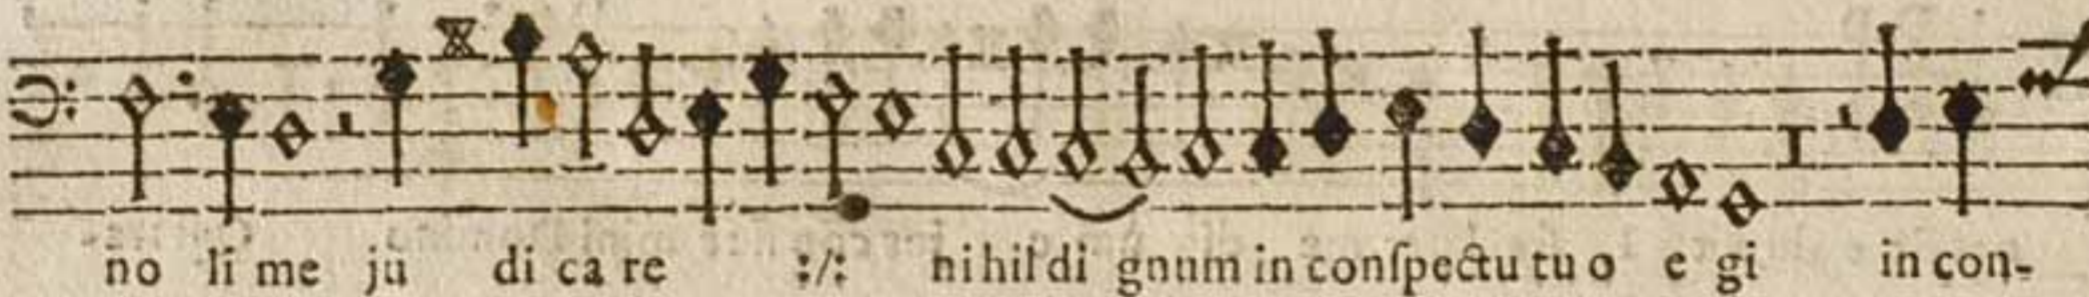 no li me ju di ca re :/: ni hil di gnum in conſpectu tu o e gi in con-